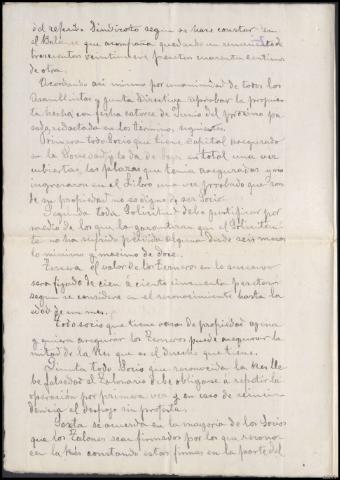 del referido Sindicato segun se hace constar en
el Balance que acompaña quedando un remanente de
trescientos veintinueve pesetas cuarenta centimos
de otra.
Acordando asi mismo por unanimidad de todos los
Asambleistas y Junta Directiva reprobar la propues
ta hecha con fecha catorce de Junio del proximo pa
sado, redactada en los terminos siguientes.
Primera todo Socio que tiene Capital asegurado
en la Sociedad y lo da de baja en total una vez
cubiertas, las plazas que tenia aseguradas y no
ingresaron en el libro una vez probado que son
de su propiedad no es digno de ser Socio.
Segunda toda Solicitud debe justificar por
medio de los que la garantizan que el Solicitan
te no ha sufrido perdida alguna desde seis meses
lo minimo y maximo de doce.
Tercera el valor de los terneros en lo sucesivo
sera fijado de cien á ciento cincuenta pesetas
segun se considere en el reconocimiento hasta la
edad de un mes.
Todo socio que tiene vacas de propiedad agena
y quiera asegurar los terneros puede asegurar la
mitad de la Res que es el derecho que tiene.
Quinta todo Socio que reconocida la Res lle
be falsedad el talonario debe obligarse á repetir la
operación por primera vez y en caso de reinci
dencia el despojo sin protesta.
Sexta se acuerda en la mayoria de los Socios
que los talones sean firmados por los que recono
cen la Res constando estas firmas en la parte del